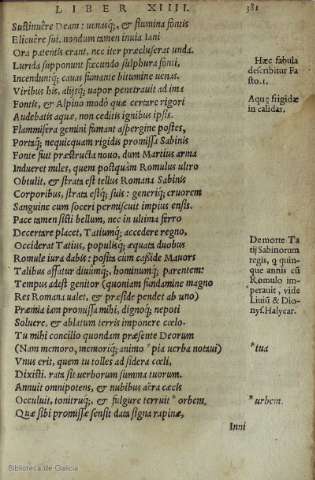 LIBER XIIII.
381
Sustinuere Deam: uenasq́;, & flumina fontis
Elicuere sui. nondum tamen inuia Iani
Ora patentis erant, nec iter præcluserat unda.
Lurida supponunt fœcundo sulphura fonti,
Incenduntq́; cauas fumante bitumine uenas.
Viribus his, alijsq́; uapor penetrauit ad ima
Fontis, & Alpino modò quæ certare rigori
Audebatis aquæ, non ceditis ignibus ipsis.
Flammifera gemini fumant aspergine postes,
Portaq́; nequicquam rigidis promissa Sabinis
Fonte fuit præstructa nouo, dum Martius arma
Indueret miles, quem postquàm Romulus ultro
Obtulit, & strata est tellus Romana Sabinis
Corporibus, strata estq́; suis: generiq́; cruorem
Sanguine cum soceri permiscuit impius ensis.
Pace tamen sisti bellum, nec in ultima ferro
Decertare placet, Tatiumq́; accedere regno,
Occiderat Tatius, populisq́; æquata duobus
Romule iura dabas: positis cum casside Mauors
Talibus affatur diuúmq́;, hominumq́; parentem:
Tempus adest genitor (quoniam fundamine magno
Res Romana ualet, & præside pendet ab uno)
Præmia iam promissa mihi, dignoq́; nepoti
Soluere, & ablatum terris imponere cœlo.
Tu mihi concilio quondam præsente Deorum
(Nam memoro, memoriq́; animo °pia uerba notaui)
Vnus erit, quem tu tolles ad sidera cœli,
Dixisti. rata sit uerborum summa tuorum.
Annuit omnipotens, & nubibus aëra cæcis
Occuluit, tonitruq́;, & fulgure terruit * orbem,
Quæ sibi promissæ sensit data signa rapinæ,
Inni
Hæc fabula
describitur Fa
sto.1.
Aquę frigidæ
in calidas.
Demorte Ta
tij Sabinorum
regis, q quin-
que annis cũ
Romulo im-
perauit, vide
Liuiũ & Dio-
nys. Halycar.
°tua
*urbem.
Biblioteca de Galicia